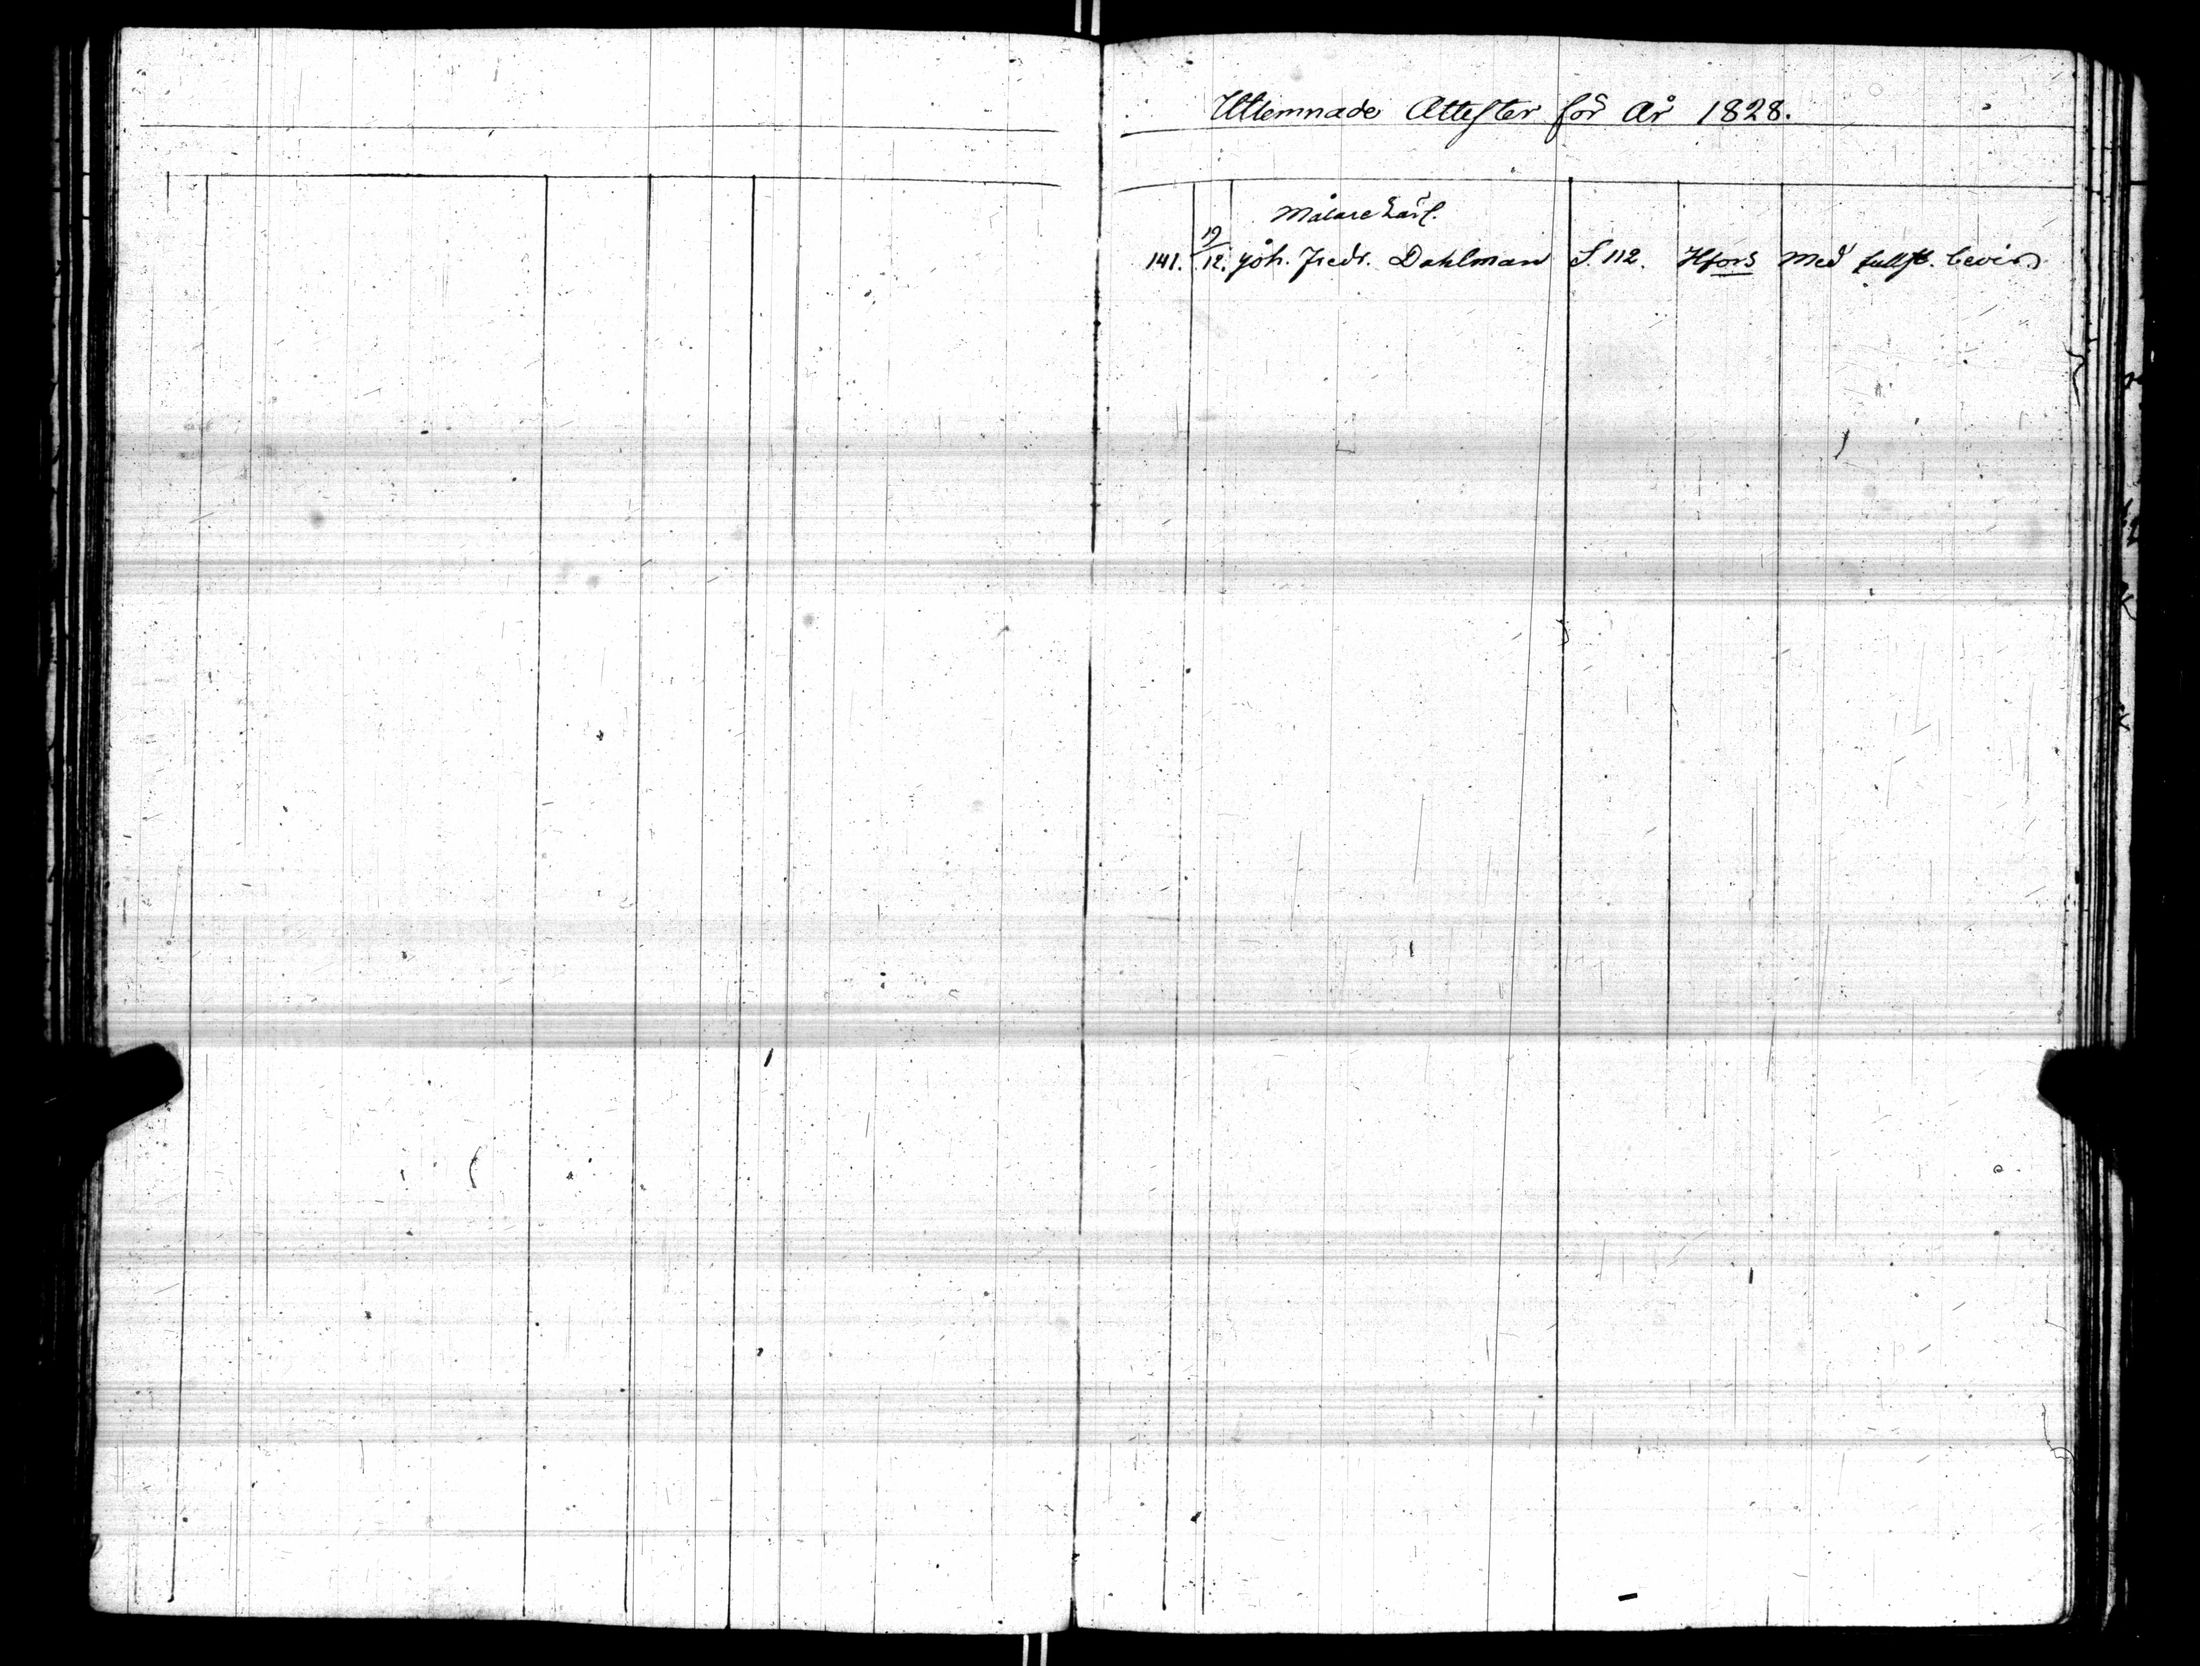 Utlemnade Attester för År 1828.
Målare Lärl.
141. 19/12. Joh. Fredr. Dahlman S. 112. Hfors Med fullst. bevis